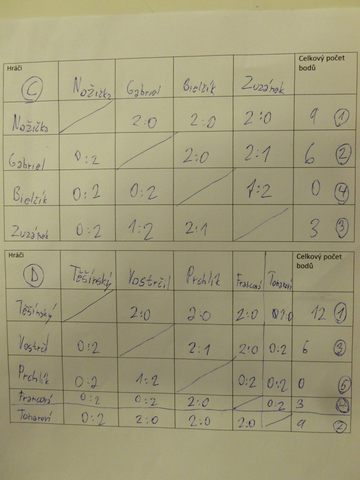 Hráči Celkový počet
bodů
C Nožička Gabriel Bielčík Zuzánek
Nožička 2:0 2:0 2:0 9 1
Gabriel 0:2 2:0 2:1 6 2
Bielčík 0:2 0:2 1:2 0 4
Zuzánek 0:2 1:2 2:1 3 3
Hráči Celkový počet
bodů
D Těšínský Vostrčil Prchlík Franconi Tomaroni
Těšínský 2:0 2:0 2:0 2:0 12 1
Vostrčil 0:2 2:1 2:0 0:2 6 3
Prchlík 0:2 1:2 0:2 0:2 0 5
Franconi 0:2 0:2 2:0 0:2 3 4
Tomaroni 0:2 2:0 2:0 2:0 9 2